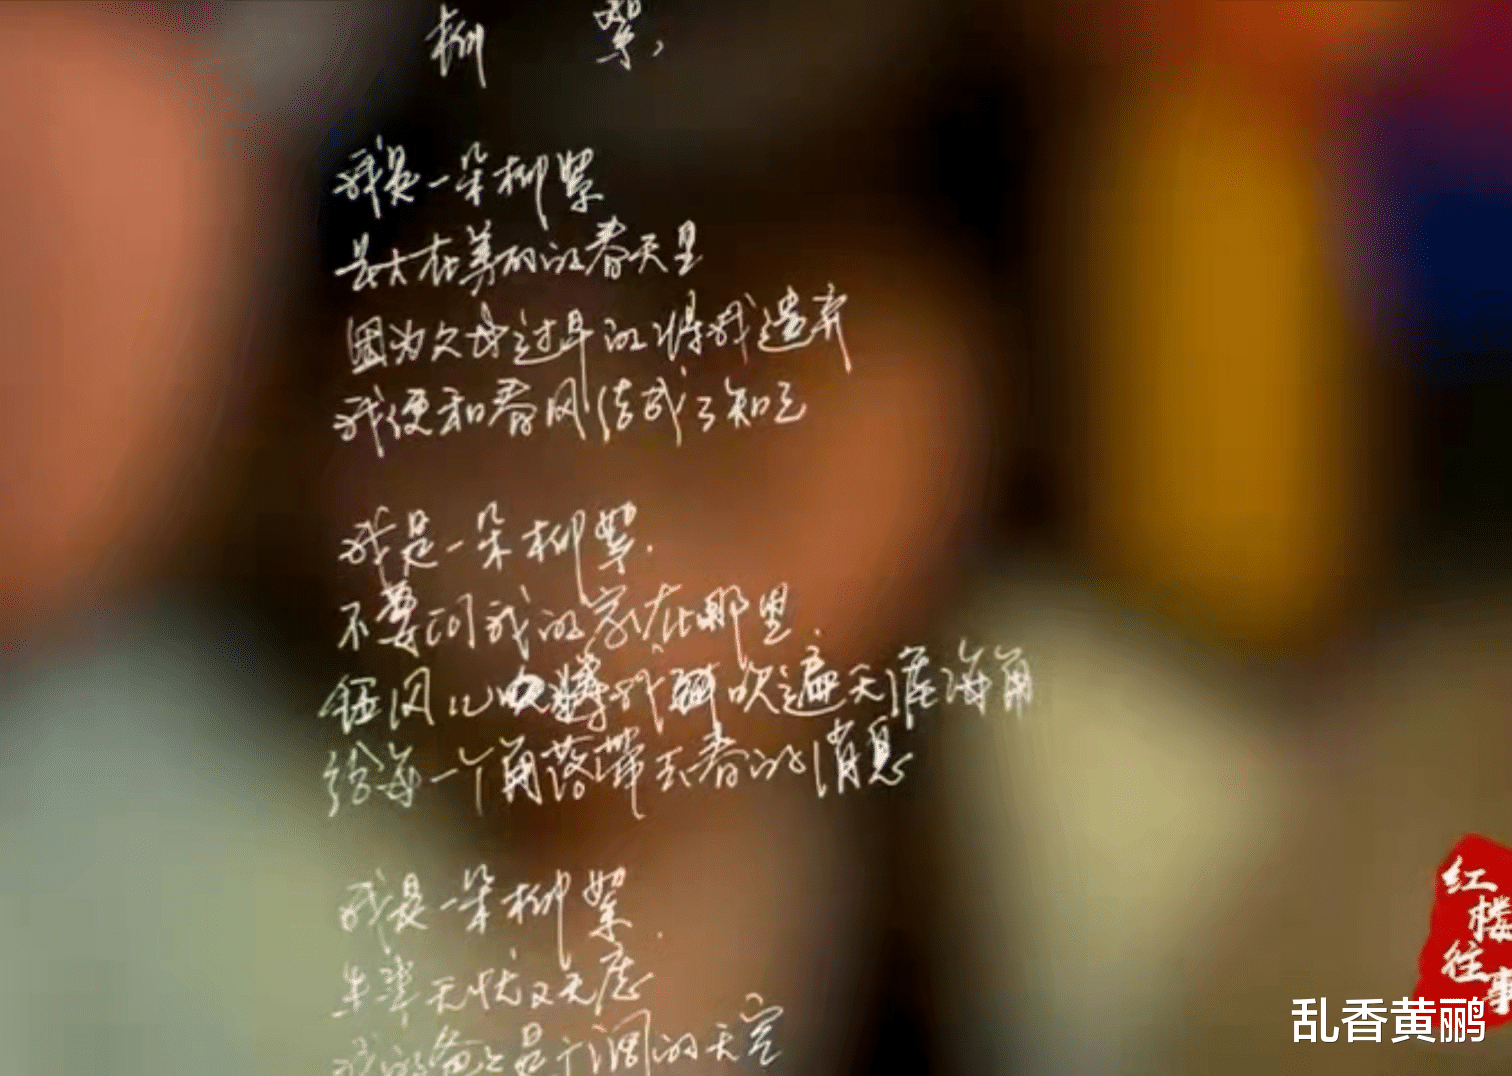 柳 絮,
我是一朵柳絮
长大在美丽的春天里
因为父母过早的将我遗弃
我便和春风结成了知己
我是一朵柳絮.
不要问我的家在哪里
风儿 我 吹遍天涯海角
给每一个角落带去春的消息
我是一朵柳絮.
生来无忧又无虑
我的爸爸是广阔的天空
红楼往事
乱香黄鹂